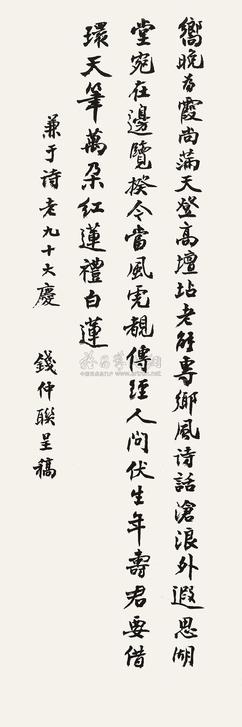 嚮晚霞尚滿天登高壇坫老能專鄉風詩話滄浪外遐思湖
堂宛在邊覽揆令當風虎覯傳經人問伏生年壽君要借
環天筆萬朵紅蓮禮白蓮
兼于詩老九十大慶 錢仲聯呈稿